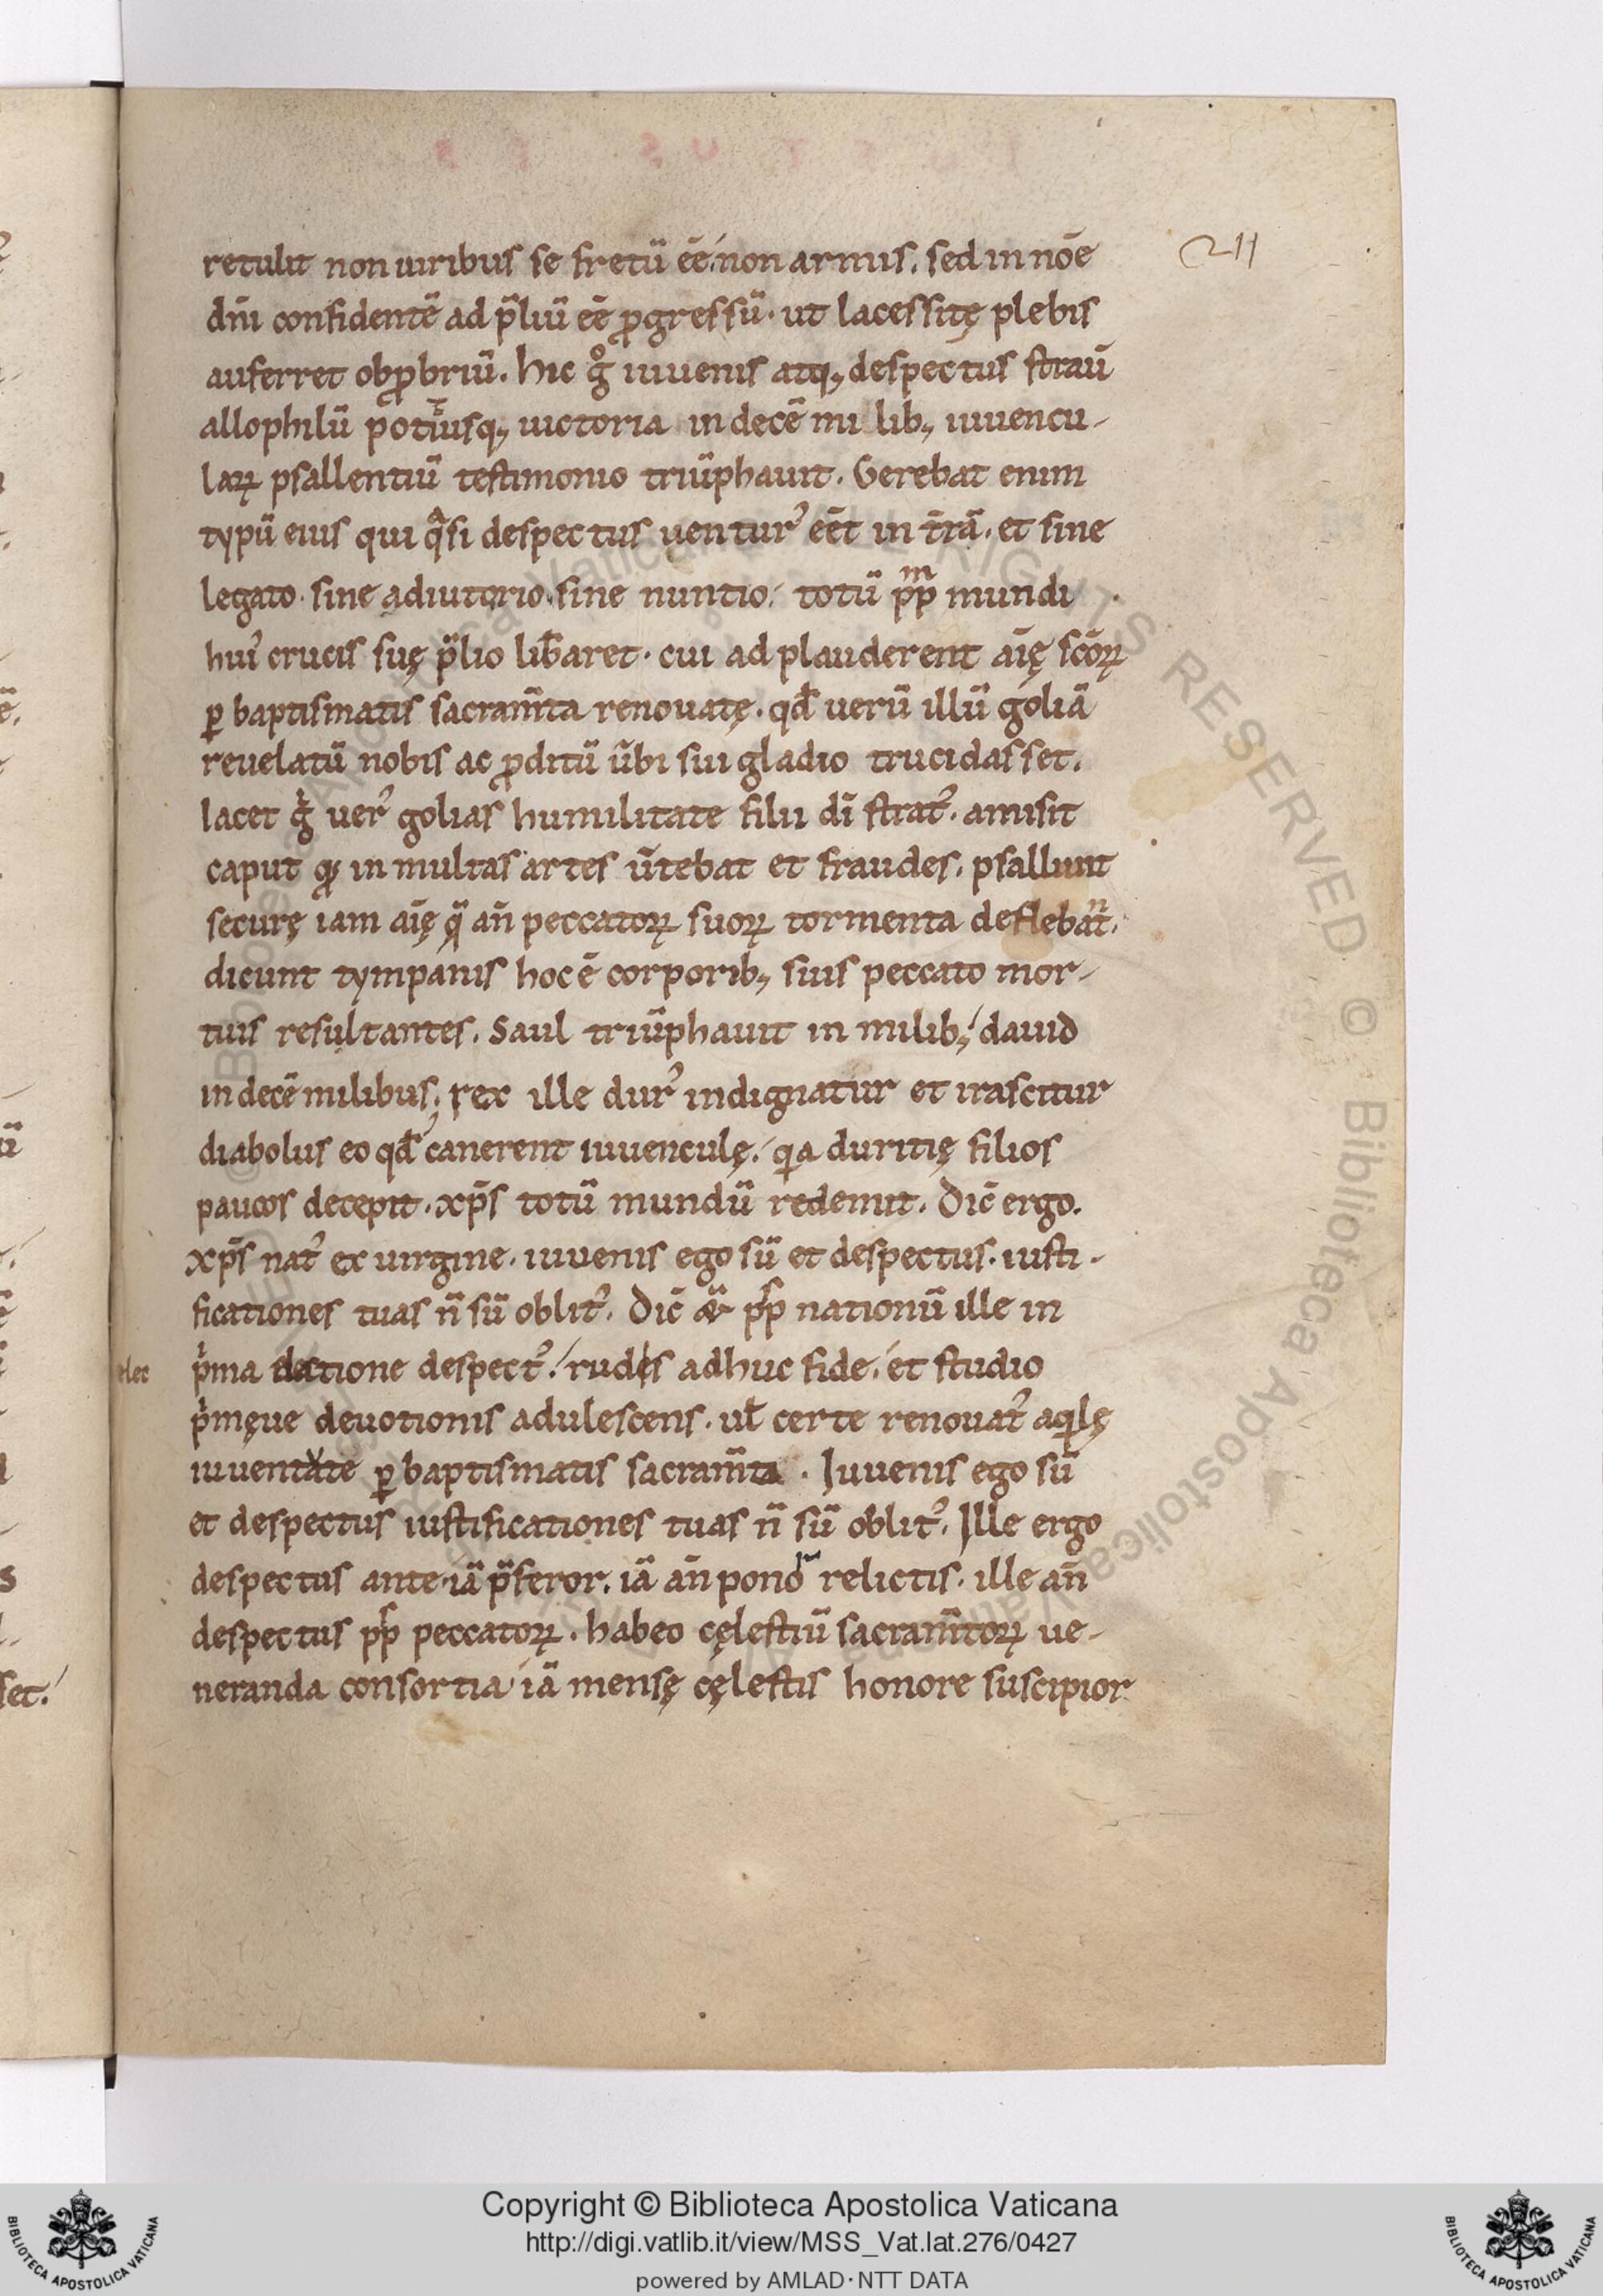 211
retulit non uiribus se fretū eē. non armis. sed in nōe
dn̄i confidentē ad p̄liū eē ꝓgressū. ut lacessitę plebis
auferret obꝓbriū. hic gͦ iuuenis atq; despectus strauͭ
allophilū potiusq; uictoria in decē mi lib; iuuencu-
laꝝ psallentiū testimonio triūphauit. Gerebat enim
typū eius qui qͣsi despectus uentur᾽ eēt in tr̄ā. et sine
legato. sine adiutorio. sine nuntio. totū pp̄m mundi
hui᾽ crucis suę p̄lio lib̄aret. cui ad plauderent aīę sc̄oꝝ
ꝑ baptismatis sacram̄ta renouatę. qd̄ uerū illū goliā
reuelatū nobis ac ꝓditū ūbi sui gladio trucidasset.
Iacet gͥ uer᾽ golias humilitate filii dī strat᾽. amisit
caput qđ in multas artes ūtebat et fraudes. psallunt
securę iam aīę q̄ an̄ peccatoꝝ suoꝝ tormenta deflebant.
dicunt tympanis hoc ē corporib; suis peccato mor-
tuis resultantes. Saul triūphauit in milib; dauid
in decē milibus. rex ille dur᾽ indignatur et irascitur
diabolus eo qd̄ canerent iuuenculę. qa duritię filios
paucos decepit. xp̄s totū mundū redemit. Dic̄ ergo.
xp̄s nat᾽ ex uirgine. iuuenis ego sū et despectus. iusti-
ficationes tuas n̄ sū oblit᾽. Dic̄ & pp̄s nationū ille in
elec pͥma lectione despect᾽. rudis adhuc fide. et studio
pͥmęue deuotionis adulescens. ul̄ certe renouat᾽ aqͥlę
iuuentute ꝑ baptismatis sacram̄ta. Iuuenis ego sū
et despectus iustificationes tuas n̄ sū oblit᾽. Ille ergo
despectus ante. iā p̄feror. iā an̄pono͛ relictis. ille an̄
despectus pp̄s peccatoꝝ. habeo cęlestiū sacram̄toꝝ ue-
neranda consortia iā mensę cęlestis honore suscipior
Copyright © Biblioteca Apostolica Vaticana
http://digi.vatlib.it/view/MSS_Vat.lat.276/0427
powered by AMLAD·NTT DATA